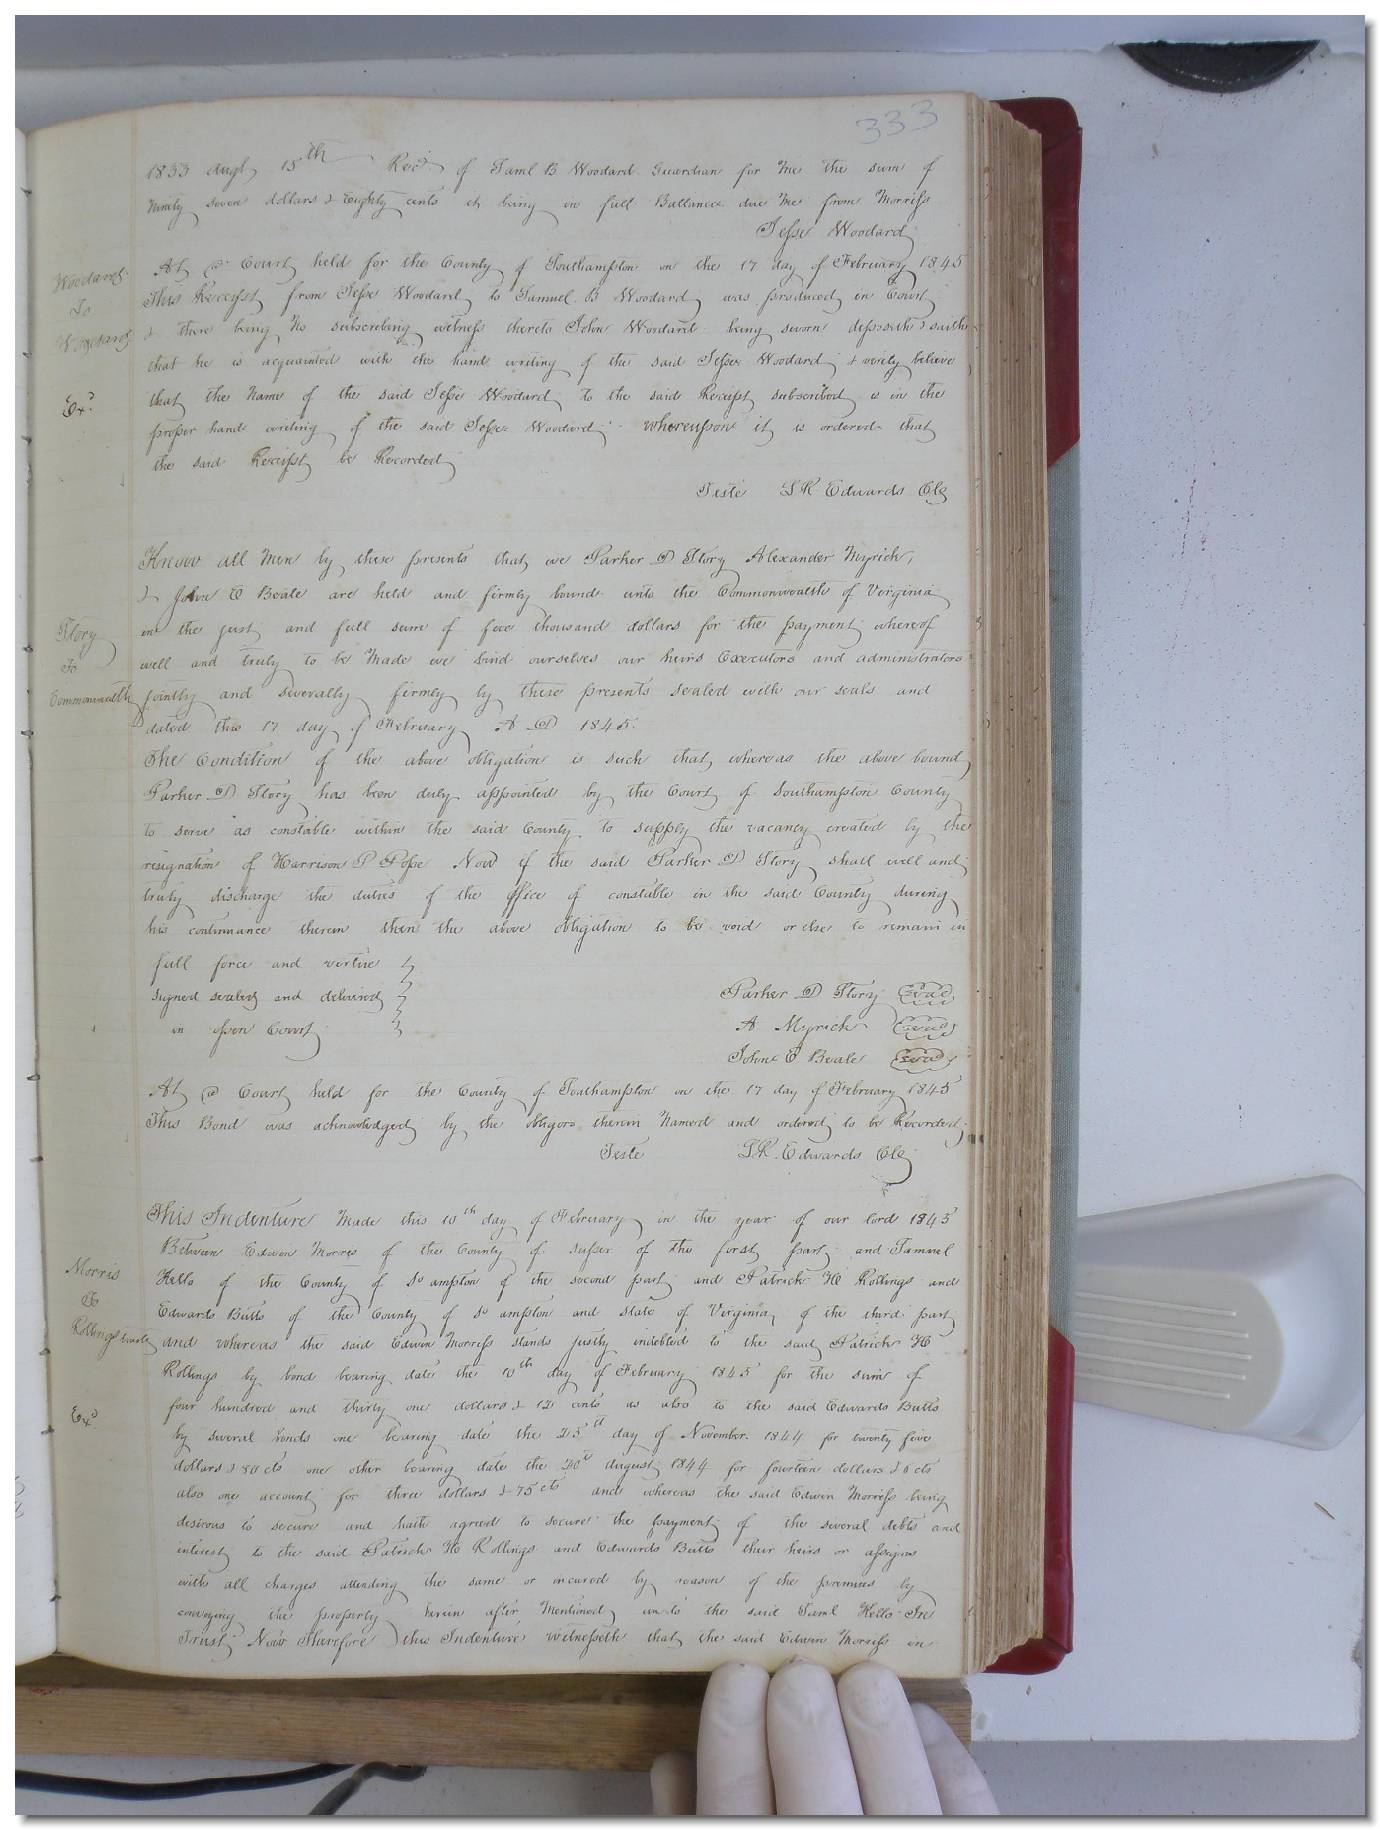 333
1833 augt 15th Recd of Saml B Woodard Guardian for Me the sum of
Ninety seven dollars & Eighty cents it being in full Ballance due Me from Morriss
Jesse Woodard
Woodard
To
Woodard
Exd
At a Court held for the County of Southampton on the 17 day of February 1845
This Receipt from Jesse Woodard to Samuel B Woodard was produced in Court
& there being No subscribing witness thereto John Woodard being sworn deposeth & saith
that he is acquainted with the hand writing of the said Jesse Woodard & verily believe
that the Name of the said Jesse Woodard to the said Receipt subscribed is in the
proper hand writing of the said Jesse Woodard whereupon it is ordered that
the said Receipt be Recorded
Teste L R Edwards Clk
Story
To
Commonwealth
Know all Men by these presents that we Parker D Story Alexander Myrick,
& John E Beale are held and firmly bound unto the Commonwealth of Virginia
in the just and full sum of five thousand dollars for the payment whereof
well and truly to be Made we bind ourselves our heirs Executors and administrators
jointly and severally firmly by these presents sealed with our seals and
dated this 17 day of February A D 1845.
The Condition of the above obligation is such that whereas the above bound
Parker D Story has been duly appointed by the Court of Southampton County
to serve as constable within the said County to supply the vacancy created by the
resignation of Harrison P Pope Now if the said Parker D Story shall well and
truly discharge the duties of the office of constable in the said County during
his continuance therein then the above obligation to be void or else to remain in
full force and virtue
signed sealed and delivered
in open Court
Parker D Story Seal
A Myrick Seal
John E Beale Seal
At a Court held for the County of Southampton on the 17 day of February 1845
This Bond was acknowledged by the obligors therein Named and ordered to be Recorded
Teste L R. Edwards Clk
Morris
To
Rollings trustee
Exd
This Indenture Made this 10th day of February in the year of our lord 1845
Between Edwin Morris of the County of Sussex of the first part and Samuel
Kello of the County of So ampton of the second part and Patrick H Rollings and
Edwards Butts of the County of So ampton and state of Virginia of the third part
and whereas the said Edwin Morriss stands justly indebted to the said Patrick H
Rollings by bond bearing date the 10th day of February 1845 for the sum of
four hundred and thirty one dollars & 12 cents as also to the said Edwards Butts
by several bonds one bearing date the 25th day of November 1844 for twenty five
dollars & 80 cts one other bearing date the 20th august 1844 for fourteen dollars & 6 cts
also one account for three dollars & 75 cts and whereas the said Edwin Morriss being
desirous to secure and hath agreed to secure the payment of the several debts and
interest to the said Patrick H Rollings and Edwards Butts their heirs or assigns
with all charges attending the same or incured by reason of the premises by
conveying the property herein after Mentioned unto the said Saml Kello In
Trust Now Therefore this Indenture witnesseth that the said Edwin Morriss in